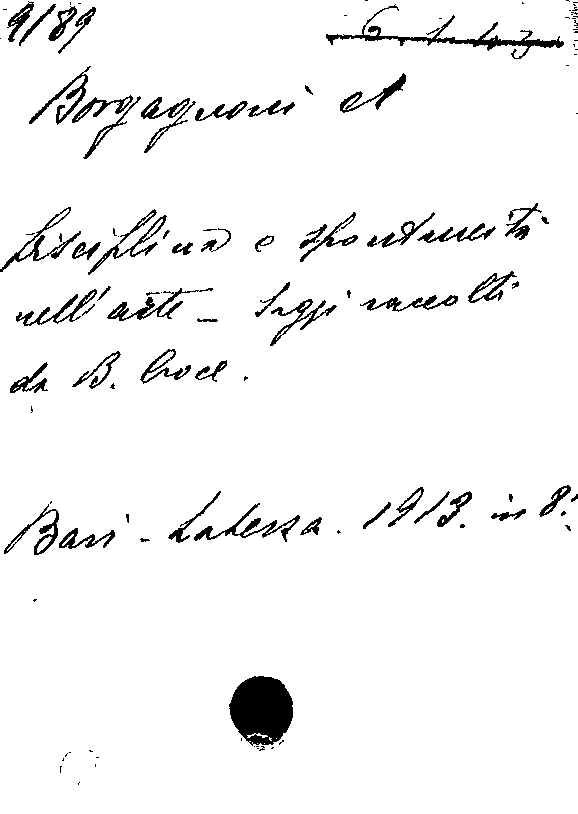 9/89
Borgagnoni A
Disciplina e spontaneità
nell'arte - Saggi raccolti
da B. Croce.
Bari - Laterza. 1913. in 8.°